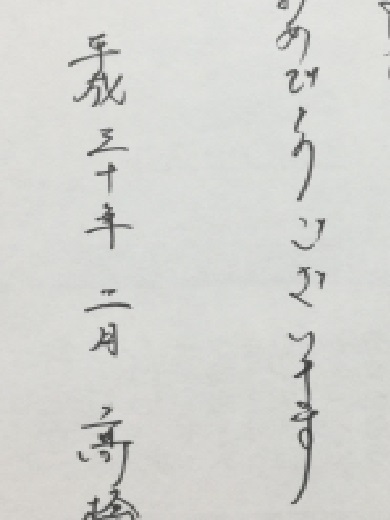 めでとうございます
平成三十年 二月 高橋